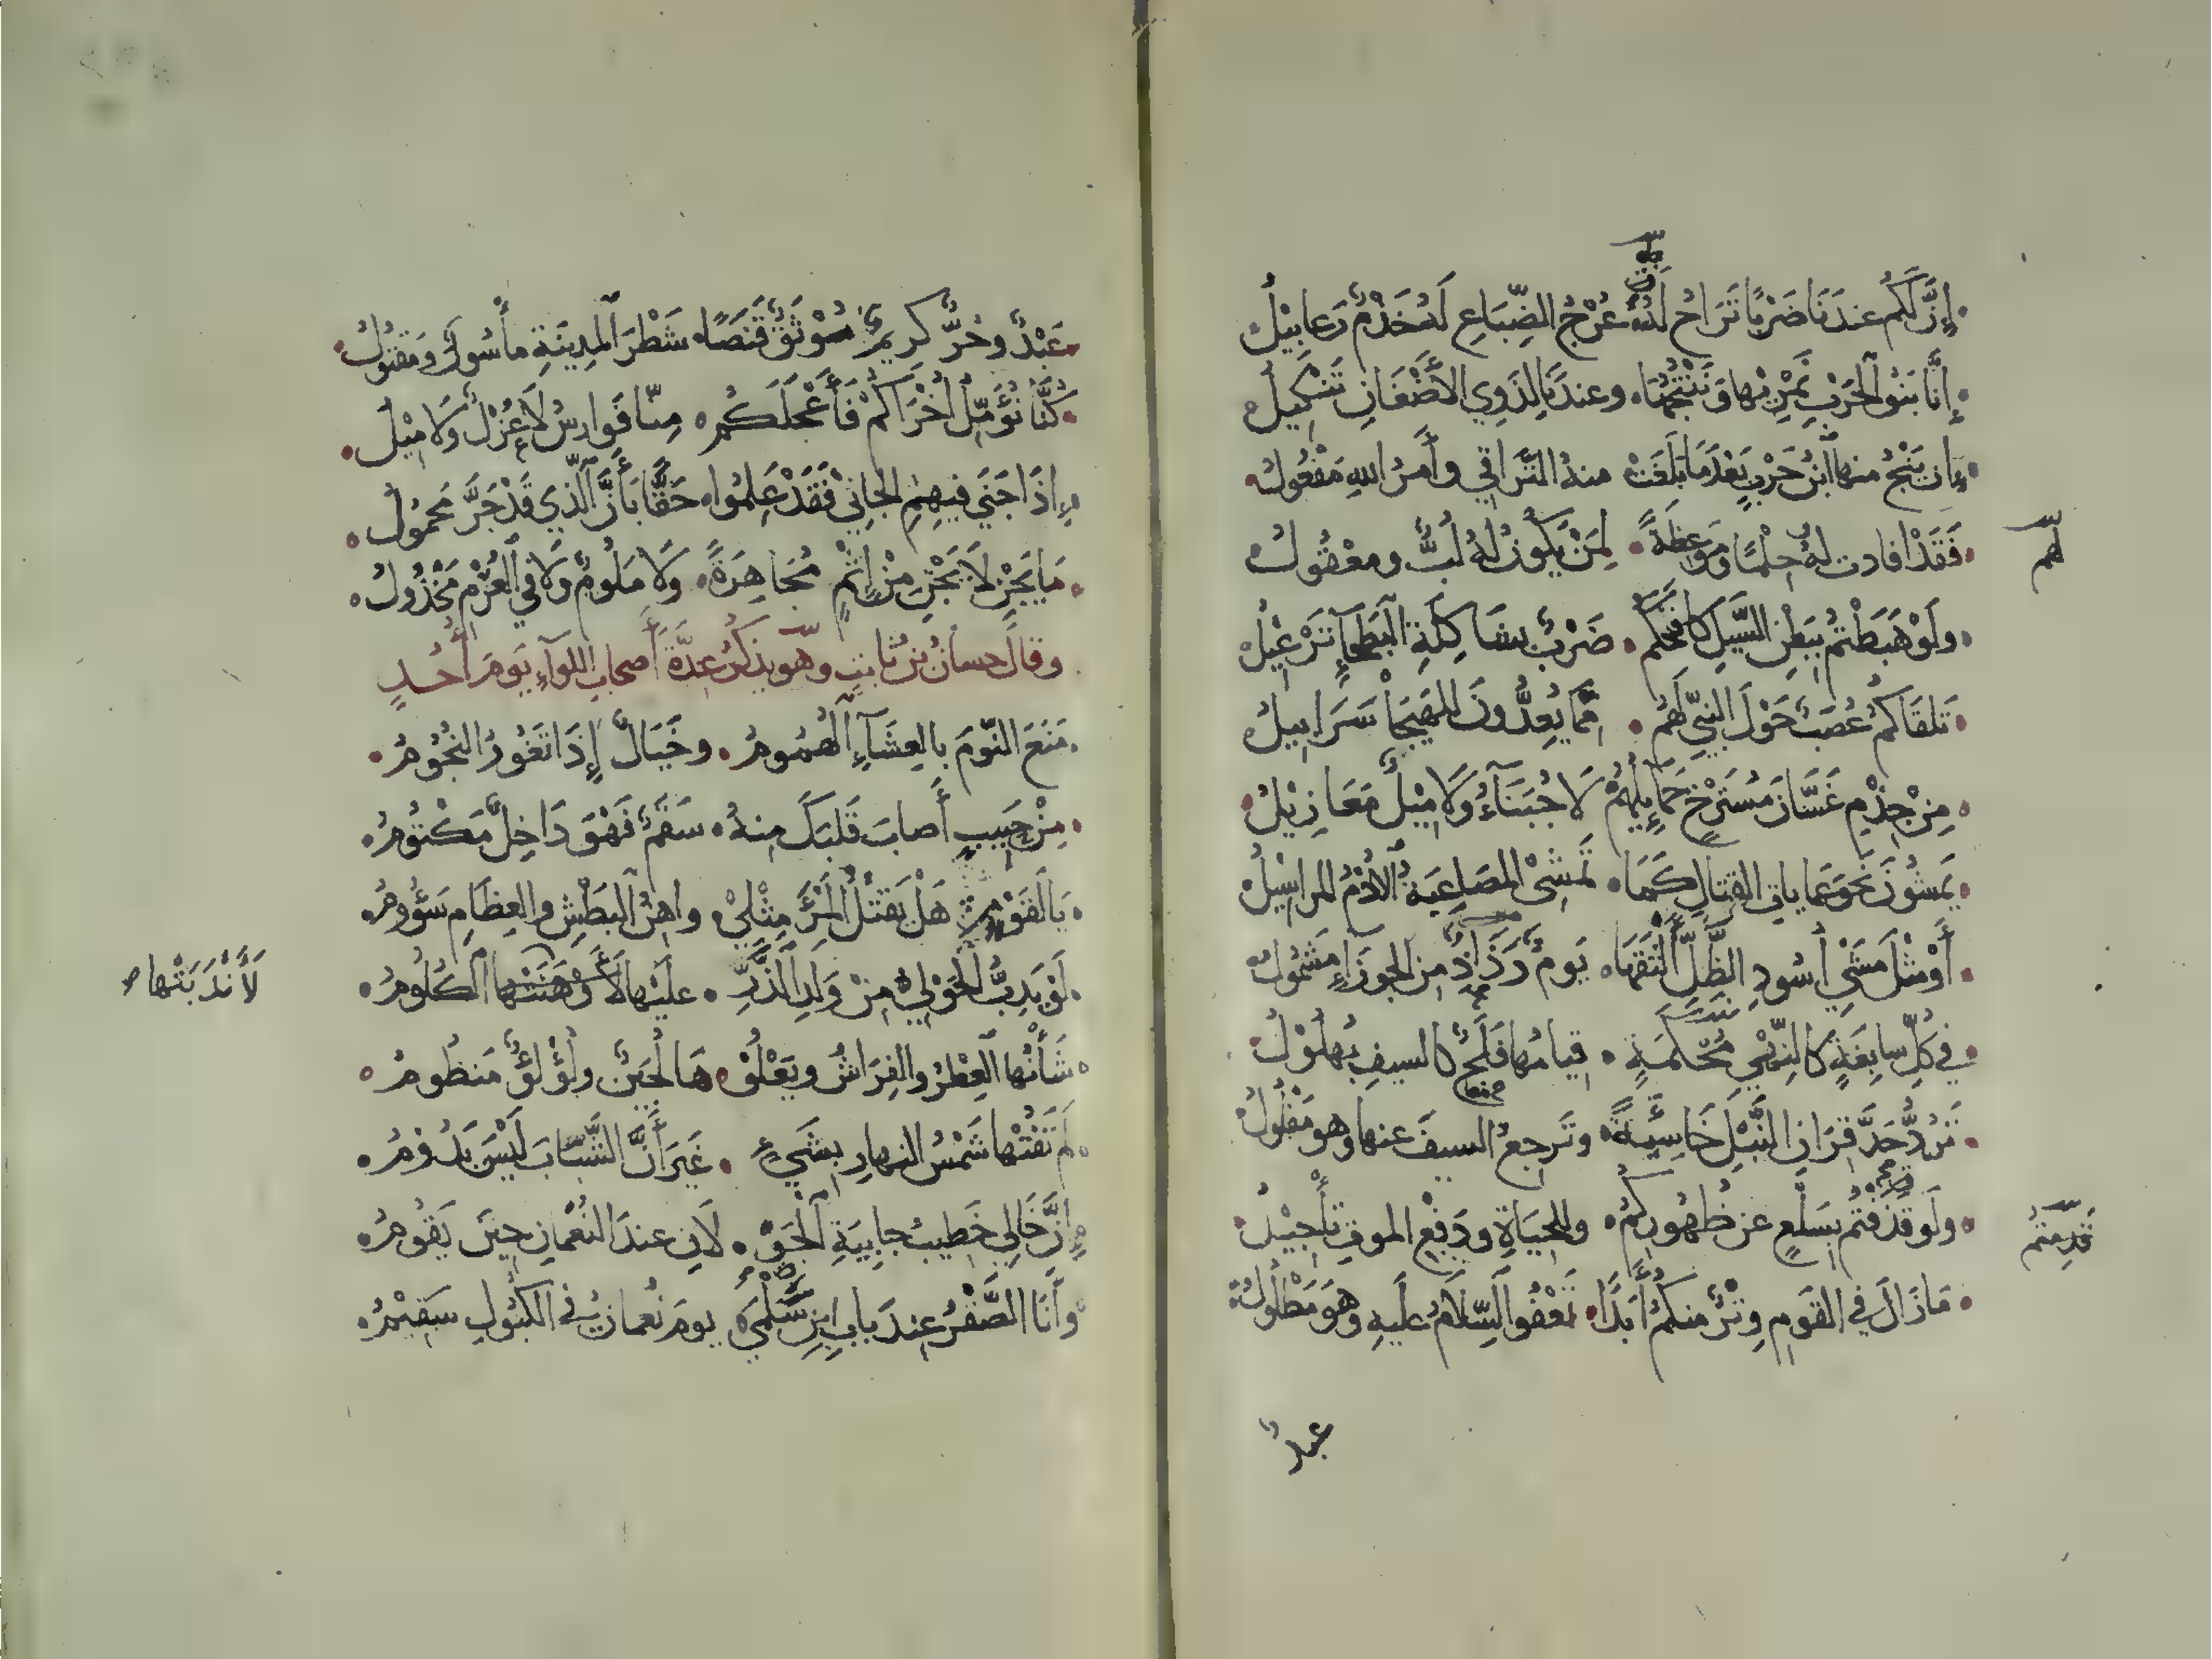 إِنَّ لَكُم عندَنَا ضَرْبًا تَرَاحُ لَهُ عُرْجُ الضِّبَاعِ لَهُ خَذْمٌ رَعابِيْلُ
إِنَّا بَنُو الحَرْبِ نَمْرِيْها وَنَنْتُجُهَا وعندَنَا لِذَوِي الأَضْغَانِ تَنْكِيلُ
إِن يَنْجُ منها ابْنُ حَرْبٍ بَعْدَمَا بَلَغَتْ منهُ التَّرَاقِي وأَمرُ اللهِ مَفْعُولُ
فَقَدْ افادت لهُ حِلْمًا ومَوعِظَةً لِمَنْ يَكُونُ لهُ لُبٌّ ومعْقُولُ
لهم
ولَوْ هَبَطْتُم بِبَطْنِ السَّيلِ كَافَحَكُم ضَرْبٌ بِشَاكِلَةِ البَطحآءِ تَرْعِيْلُ
تَلقَاكُم عُصَبٌ حَوْلَ النبيِّ لَهُم مِمَّا يُعِدُّونَ للهَيجَا سَرَابيلُ
مِنْ جِذْمِ غَسَّانَ مُسْتَرْخٍ حَمَايِلُهُمْ لَا جُبَنَآءُ وَلَا مِيْلٌ مَعَازِيْلُ
يَمشُونَ نَحوَ عَمايات القِتالِ كَمَا تَمشِى المَصاعِبَةُ الأُدْمُ المراسِيلُ
أَوْ مِثْلَ مَشْيِ أُسُودِ الظِّلِّ أَلْثَقَهَا يَومٌ رَذَاذٌ من الجوزَآءِ مَشْمُولُ
في كُلِّ سابِغَةٍ كالنِّهْيِ مُحْكَمَةٍ قِيامُها فَلَجٌ كالسيفِ بُهلُوْلُ
تَرُدُّ حَدَّ قِرَانِ النَّبْلِ خَاسِئَةً وتَرجعُ السيفَ عنها وهو مَفْلُولُ
ولَو قُذِفْتُم بِسَلْعٍ عن ظُهُورِكُم وللحيَاةِ ودَفْعِ الموتِ تأْجِيْلُ
قَدِمتُم
مَا زَالَ في القَومِ وِتْرٌ منكُم أَبَدًا تَعْفُوا السِّلَامُ عليهِ وهْوَ مَطْلُولُ
عبدٌ
عَبْدٌ وحُرٌّ كرِيمٌ مُوْثَقٌ قَنَصًا شَطْرَ المدِينَةِ مأْسُورٌ ومَقتُولُ
كُنَّا نُؤَمِّلُ أُخْرَاكُمْ فَأَعْجَلَكُم مِنّا فَوارسُ لَا عُزْلٌ وَلَا مِيْلُ
إِذَا جَنَى فيهِمِ الجَانِيْ فَقَدْ عَلِمُوا حَقًّا بأَنَّ الَّذي قَدْ جَرَّ مَحمُولُ
مَا يَجْنِ لَا يَجْنِ مِنْ إِثْمٍ مُجَاهِرَةً وَلَا مَلُومٌ وَلَا في الغُرْمِ مَخْذُولُ
وقالَ حسانُ بن ثابتٍ وهو يذكُر عِدَّةَ أَصحابِ اللوآءِ يَومَ أُحُدٍ
مَنَعَ النَّومَ بالعِشَآءِ الهُمُومُ وخَيَالٌ إِذَا تَغُورُ النجُوْمُ
مِنْ حَبِيبٍ أَصابَ قَلبَكَ مِنهُ سَقَمٌ فَهْوَ دَاخِلٌ مَكْتُوْمُ
يَا لَقَوْمٍ هَلْ يَقتُلُ المَرْءَ مِثْلِيْ واهِنُ البَطْشِ والعِظَامِ سَؤُوْمُ
لَوْ يَدِبُّ الحَوْلِيُّ مِنْ وَلَدِ الذَّرِّ عليها لَأَوْهَنَتْها الكُلُومُ
لَأَنْدَبَتْها
شَأْنُها العِطْرُ والفِرَاشُ ويَعْلُوْ هَا لُجَيْنٌ ولُؤْلُؤٌ مَنظُومُ
لم تَفُتْها شَمْسُ النهارِ بِشَيْءٍ غَيرَ أَنَّ الشَّبَابَ لَيْسَ يَدُوْمُ
إِنَّ خَالِي خَطِيبُ جابِيَةِ الجَوْ لَانِ عندَ النُّعْمَانِ حِيْنَ يَقُوْمُ
وأَنَا الصَّقْرُ عِندَ بابِ ابنِ سَلْمَى يومَ نُعمانُ في الكبُولِ سَقِيْمُ